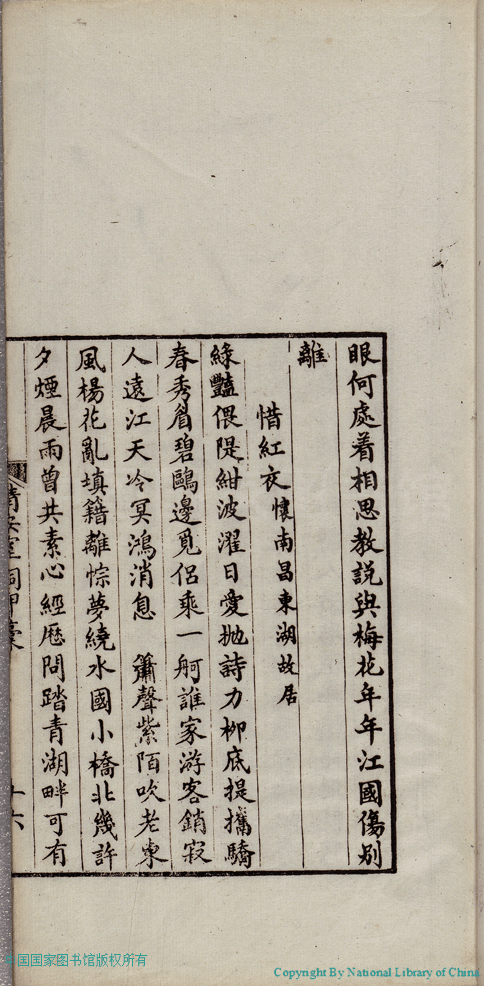 眼何處着相思教說與梅花年年江國傷別
離
惜紅衣懷南昌東湖故居
綠豔偎隄紺波濯日愛抛詩力柳底提攜驕
春秀眉碧鷗邊覓侶乘一舸誰家游客銷寂
人遠江天冷冥鴻消息 簫聲紫陌吹老東
風楊花亂填籍離悰夢繞水國小橋北幾許
夕煙晨雨曾共素心經歷問踏青湖畔可有
室詞甲稾 十六
中国国家图书馆版权所有
Copyright By National Library of China